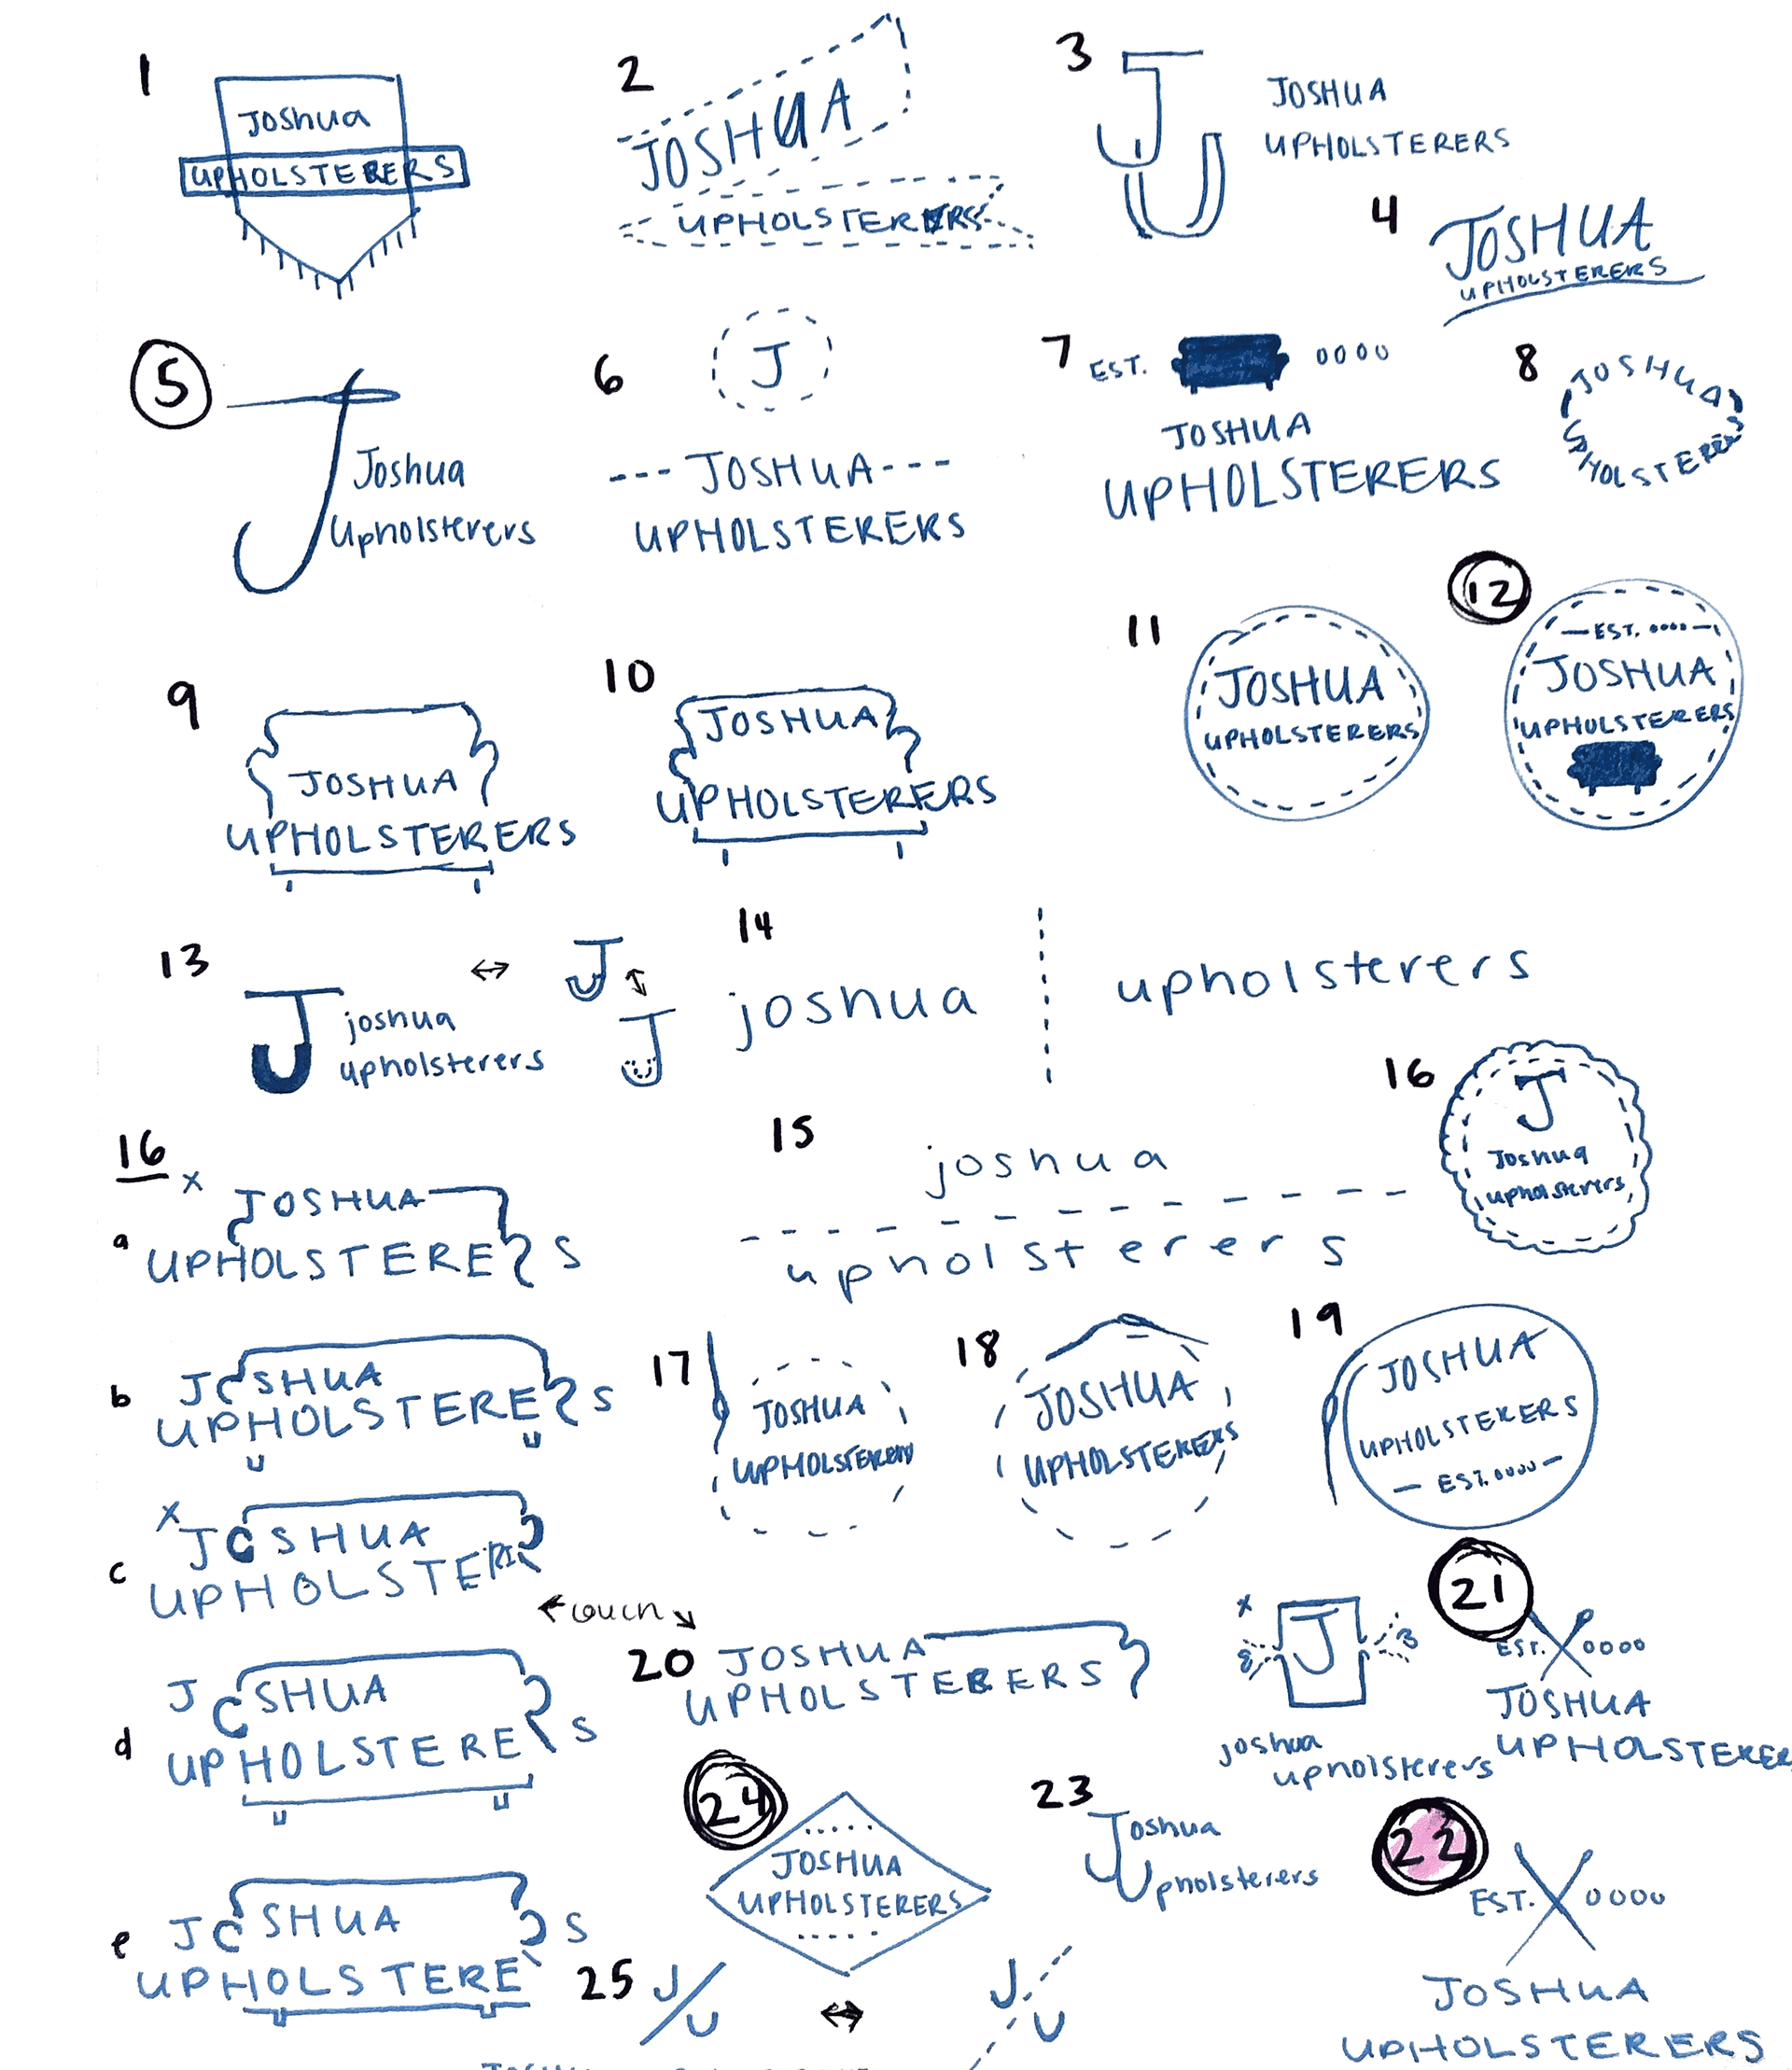 1
Joshua
UPHOLSTERERS
2
JOSHUA
UPHOLSTERERS
3
J
U
JOSHUA
UPHOLSTERERS
4
JOSHUA
UPHOLSTERERS
5
J
Joshua
Upholsterers
6
J
---JOSHUA---
UPHOLSTERERS
7
EST. 0000
JOSHUA
UPHOLSTERERS
8
JOSHUA
UPHOLSTERERS
9
JOSHUA
UPHOLSTERERS
10
JOSHUA
UPHOLSTERERS
11
JOSHUA
UPHOLSTERERS
12
—EST. 0000—
JOSHUA
UPHOLSTERERS
13
J
joshua
upholsterers
↔
J
↕
J
14
joshua
upholsterers
15
joshua
upholsterers
16
J
Joshua
upholsterers
16
x
a
JOSHUA
UPHOLSTERE S
b
J SHUA
UPHOLSTERE S
x
c
J SHUA
UPHOLSTER
d
J SHUA
UPHOLSTERE S
e
J SHUA S
UPHOLSTERE
17
JOSHUA
18
JOSHUA
UPHOLSTERERS
19
JOSHUA
UPHOLSTERERS
— EST. 0000 —
couch
20
JOSHUA
UPHOLSTERERS
x
J
joshua
upholsterers
21
EST. 0000
JOSHUA
UPHOLSTERER
22
EST. 0000
JOSHUA
UPHOLSTERERS
23
Joshua
Upholsterers
24
.....
JOSHUA
UPHOLSTERERS
.....
25
J/U
↔
J
U